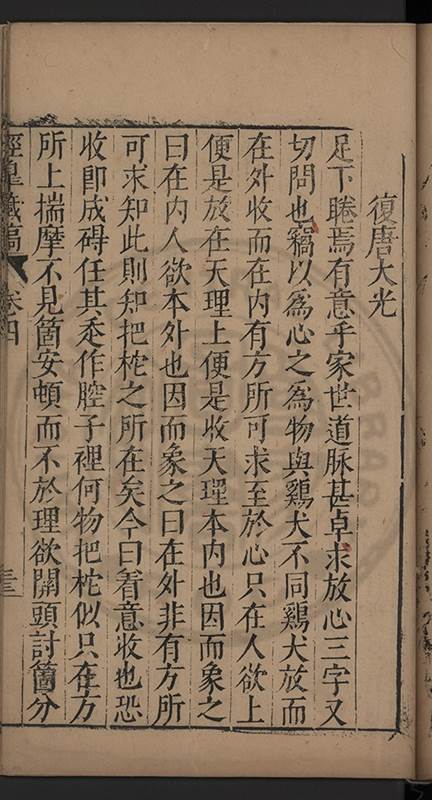 復唐大光
足下睠焉有意乎家世道脉甚卓求放心三字又
切問也竊以爲心之爲物與鷄犬不同鷄犬放而
在外收而在内有方所可求至於心只在人欲上
便是放在天理上便是收天理本内也因而象之
曰在内人欲本外也因而象之曰在外非有方所
可求知此則知把柁之所在矣今曰着意收也恐
收卽成碍任其走作腔子裡何物把柁似只在方
所上揣摩不見箇安頓而不於理欲關頭討箇分
涇臯藏稿 卷四